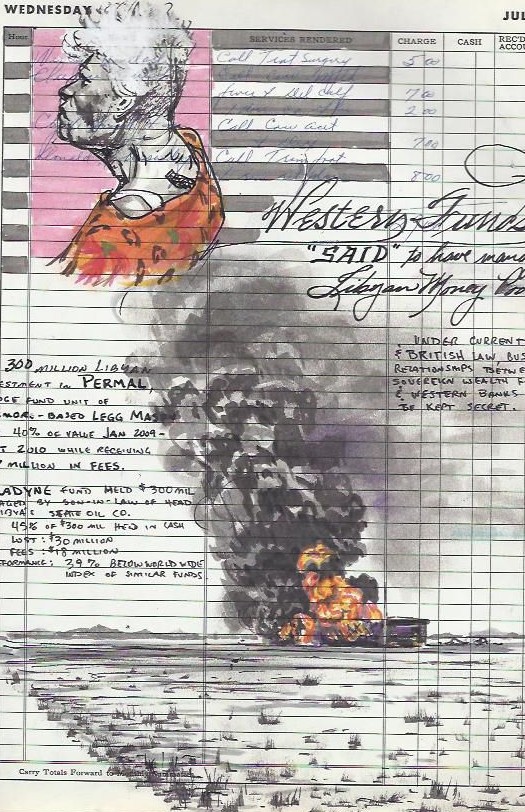 WEDNESDAY
JUL
Hour
SERVICES RENDERED
CHARGE
CASH
REC'D
ACCOU
Call
5 00
7 00
2 00
Call Cow
7 00
Call
8 00
Western Funds
"SAID" to have mana
Libyan Money Poo
UNDER CURRENT
& BRITISH LAW, BUS
RELATIONSHIPS BETWE
SOVEREIGN WEALTH F
& WESTERN BANKS
BE KEPT SECRET.
300 MILLION LIBYAN
ESTMENT in PERMAL,
DGE FUND UNIT OF
MORE-BASED LEGG MASON
40% OF VALUE JAN 2009-
T 2010 WHILE RECEIVING
MILLION IN FEES.
ADYNE FUND HELD $300 MIL
AGED BY SON-IN-LAW OF HEAD
IBYA'S STATE OIL CO.
45% OF $300 MIL HELD IN CASH
LOST: $30 MILLION
FEES: $18 MILLION
FORMANCE: 39% BELOW WORLD WIDE
INDEX OF SIMILAR FUNDS
Carry Totals Forward to